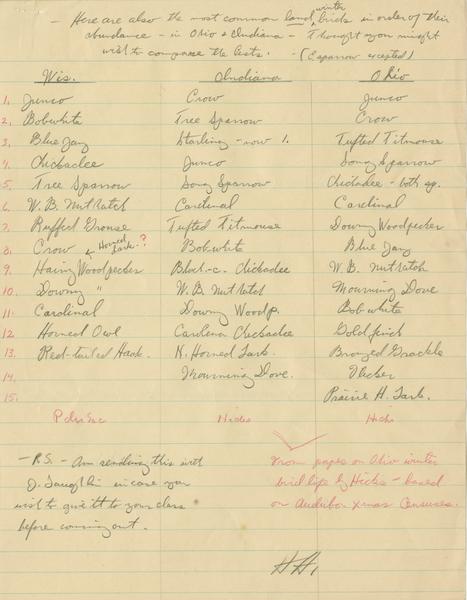 - Here are also the most common land winter birds in order of their
abundance - in Ohio & Indiana - Thought you might
wish to compare the lists. - (E. sparrow excepted)
Wis. Indiana Ohio
1. Junco Crow Junco
2. Bobwhite Tree Sparrow Crow
3. Blue Jay Starling - now 1. Tufted Titmouse
4. Chickadee Junco Song Sparrow
5. Tree Sparrow Song Sparrow Chickadee - both sp.
6. W. B. Nuthatch Cardinal Cardinal
7. Ruffed Grouse Tufted Titmouse Downy Woodpecker
8. Crow Horned Lark? Bobwhite Blue Jay
9. Hairy Woodpecker Black-c. Chickadee W. B. Nuthatch
10. Downy " W. B. Nuthatch Mourning Dove
11. Cardinal Downy Woodp. Bobwhite
12 Horned Owl Carolina Chickadee Goldfinch
13. Red-tailed Hawk. N. Horned Lark. Bronzed Grackle
14. Mourning Dove. Flicker
15. Prairie H. Lark.
Hicks Hicks
- P.S. - Am sending this with
in case you
wish to give it to your class
before coming out.
From paper on Ohio winter
bird life by Hicks - based
on Audubon Xmas Censuses.